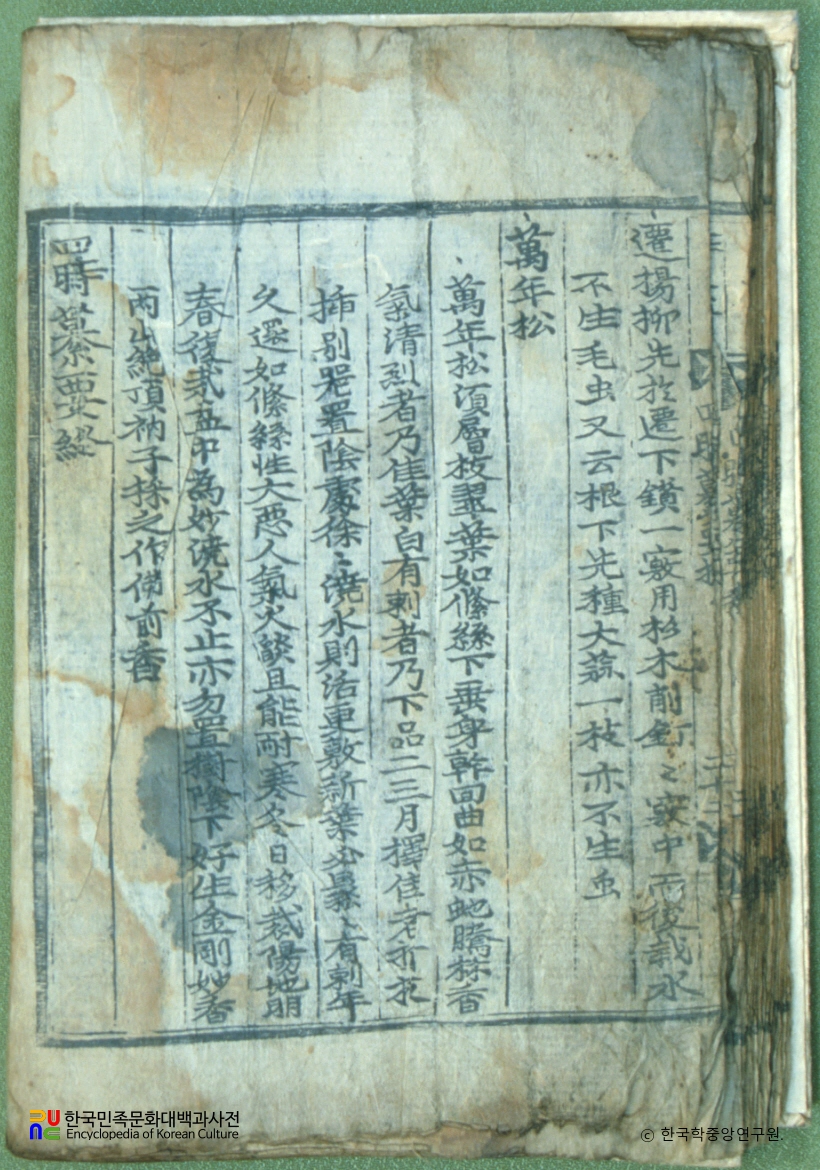 遷楊柳先於遷下鑚一竅用杉木削釘〻竅中而後栽水
不生毛虫又云根下先種大蒜一枝亦不生虫
萬年松
萬年松須層枝翠葉如絛絲下垂身幹回曲如赤虵騰林香
氣清烈者乃佳葉白有刺者乃下品二三月擇佳者折衣
揷別器置陰處徐〻澆水則活更敷新葉必〻有刺年
久還如絛絲性大惡人氣火燄且能耐寒冬日移栽陽地明
春復栽盆中為妙澆水不止亦勿置樹陰下好生金剛妙香
兩山絶頂衲子採之作佛前香
四時纂要縱
한국민족문화대백과사전
Encyclopedia of Korean Culture
© 한국학중앙연구원.